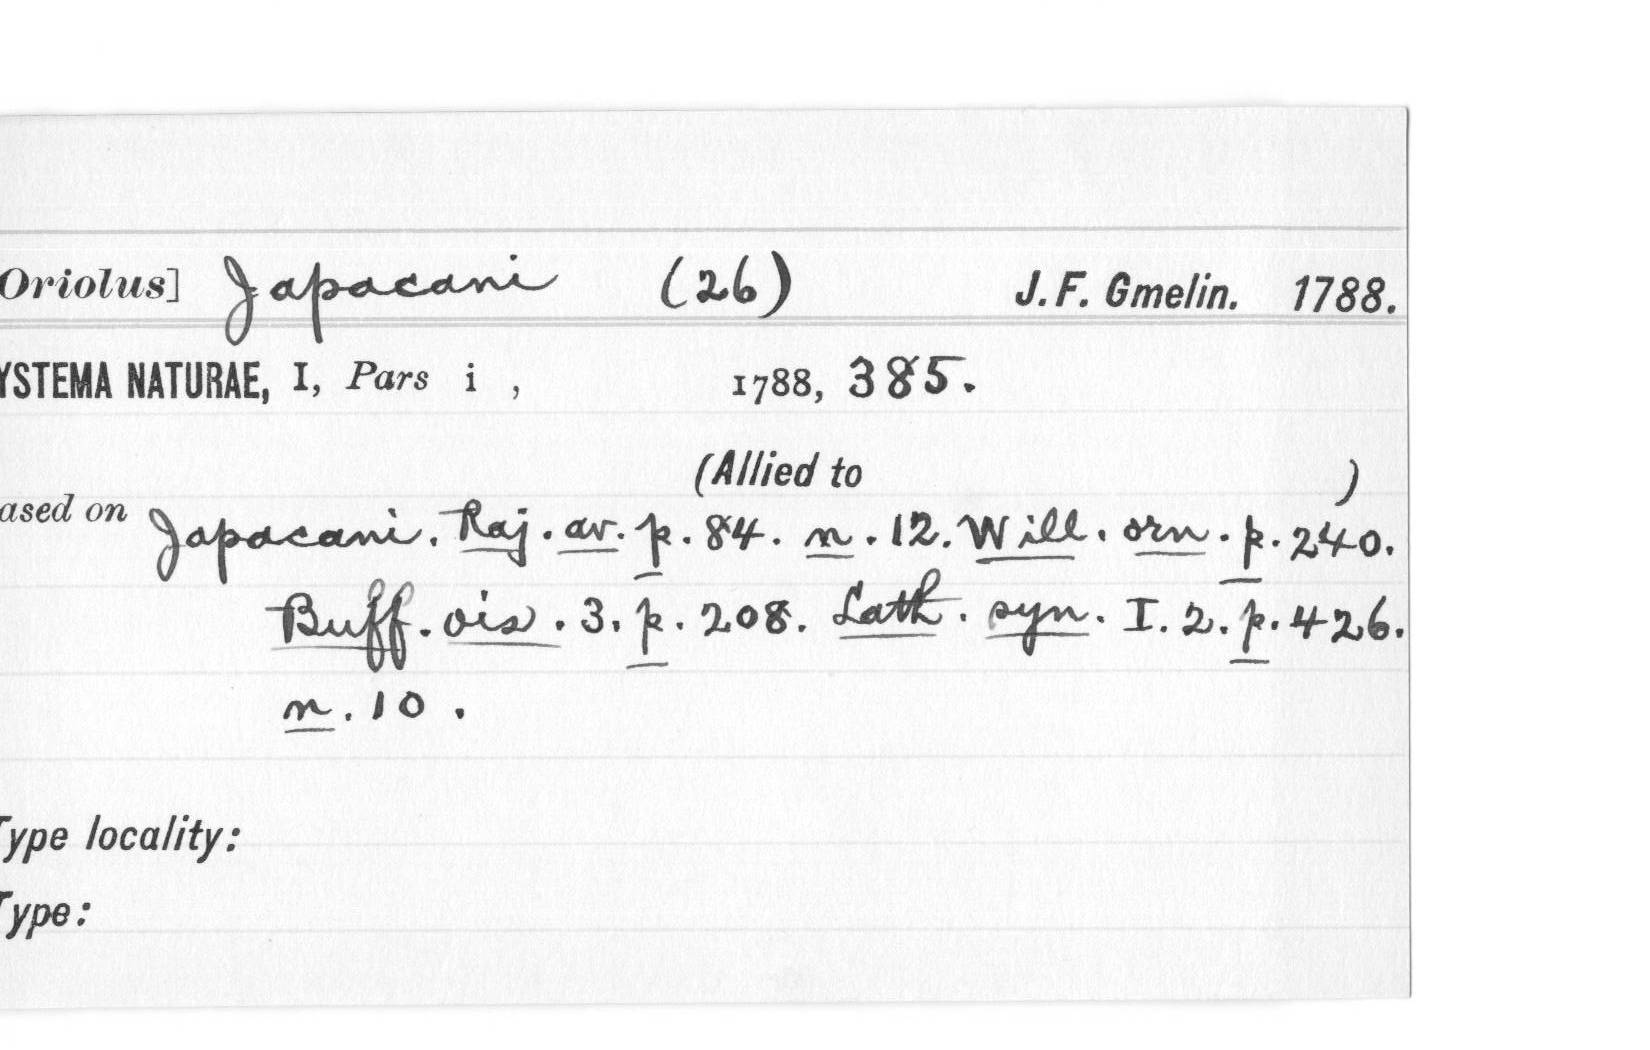 Oriolus] Japacani (26) J. F. Gmelin. 1788.
YSTEMA NATURAE, I, Pars i , 1788, 385.
(Allied to )
ased on Japacani. Raj. av. p. 84. n. 12. Will. orn. p. 240.
Buff. ois. 3. p. 208. Lath. syn. I. 2. p. 426.
n. 10.
Type locality:
Type: